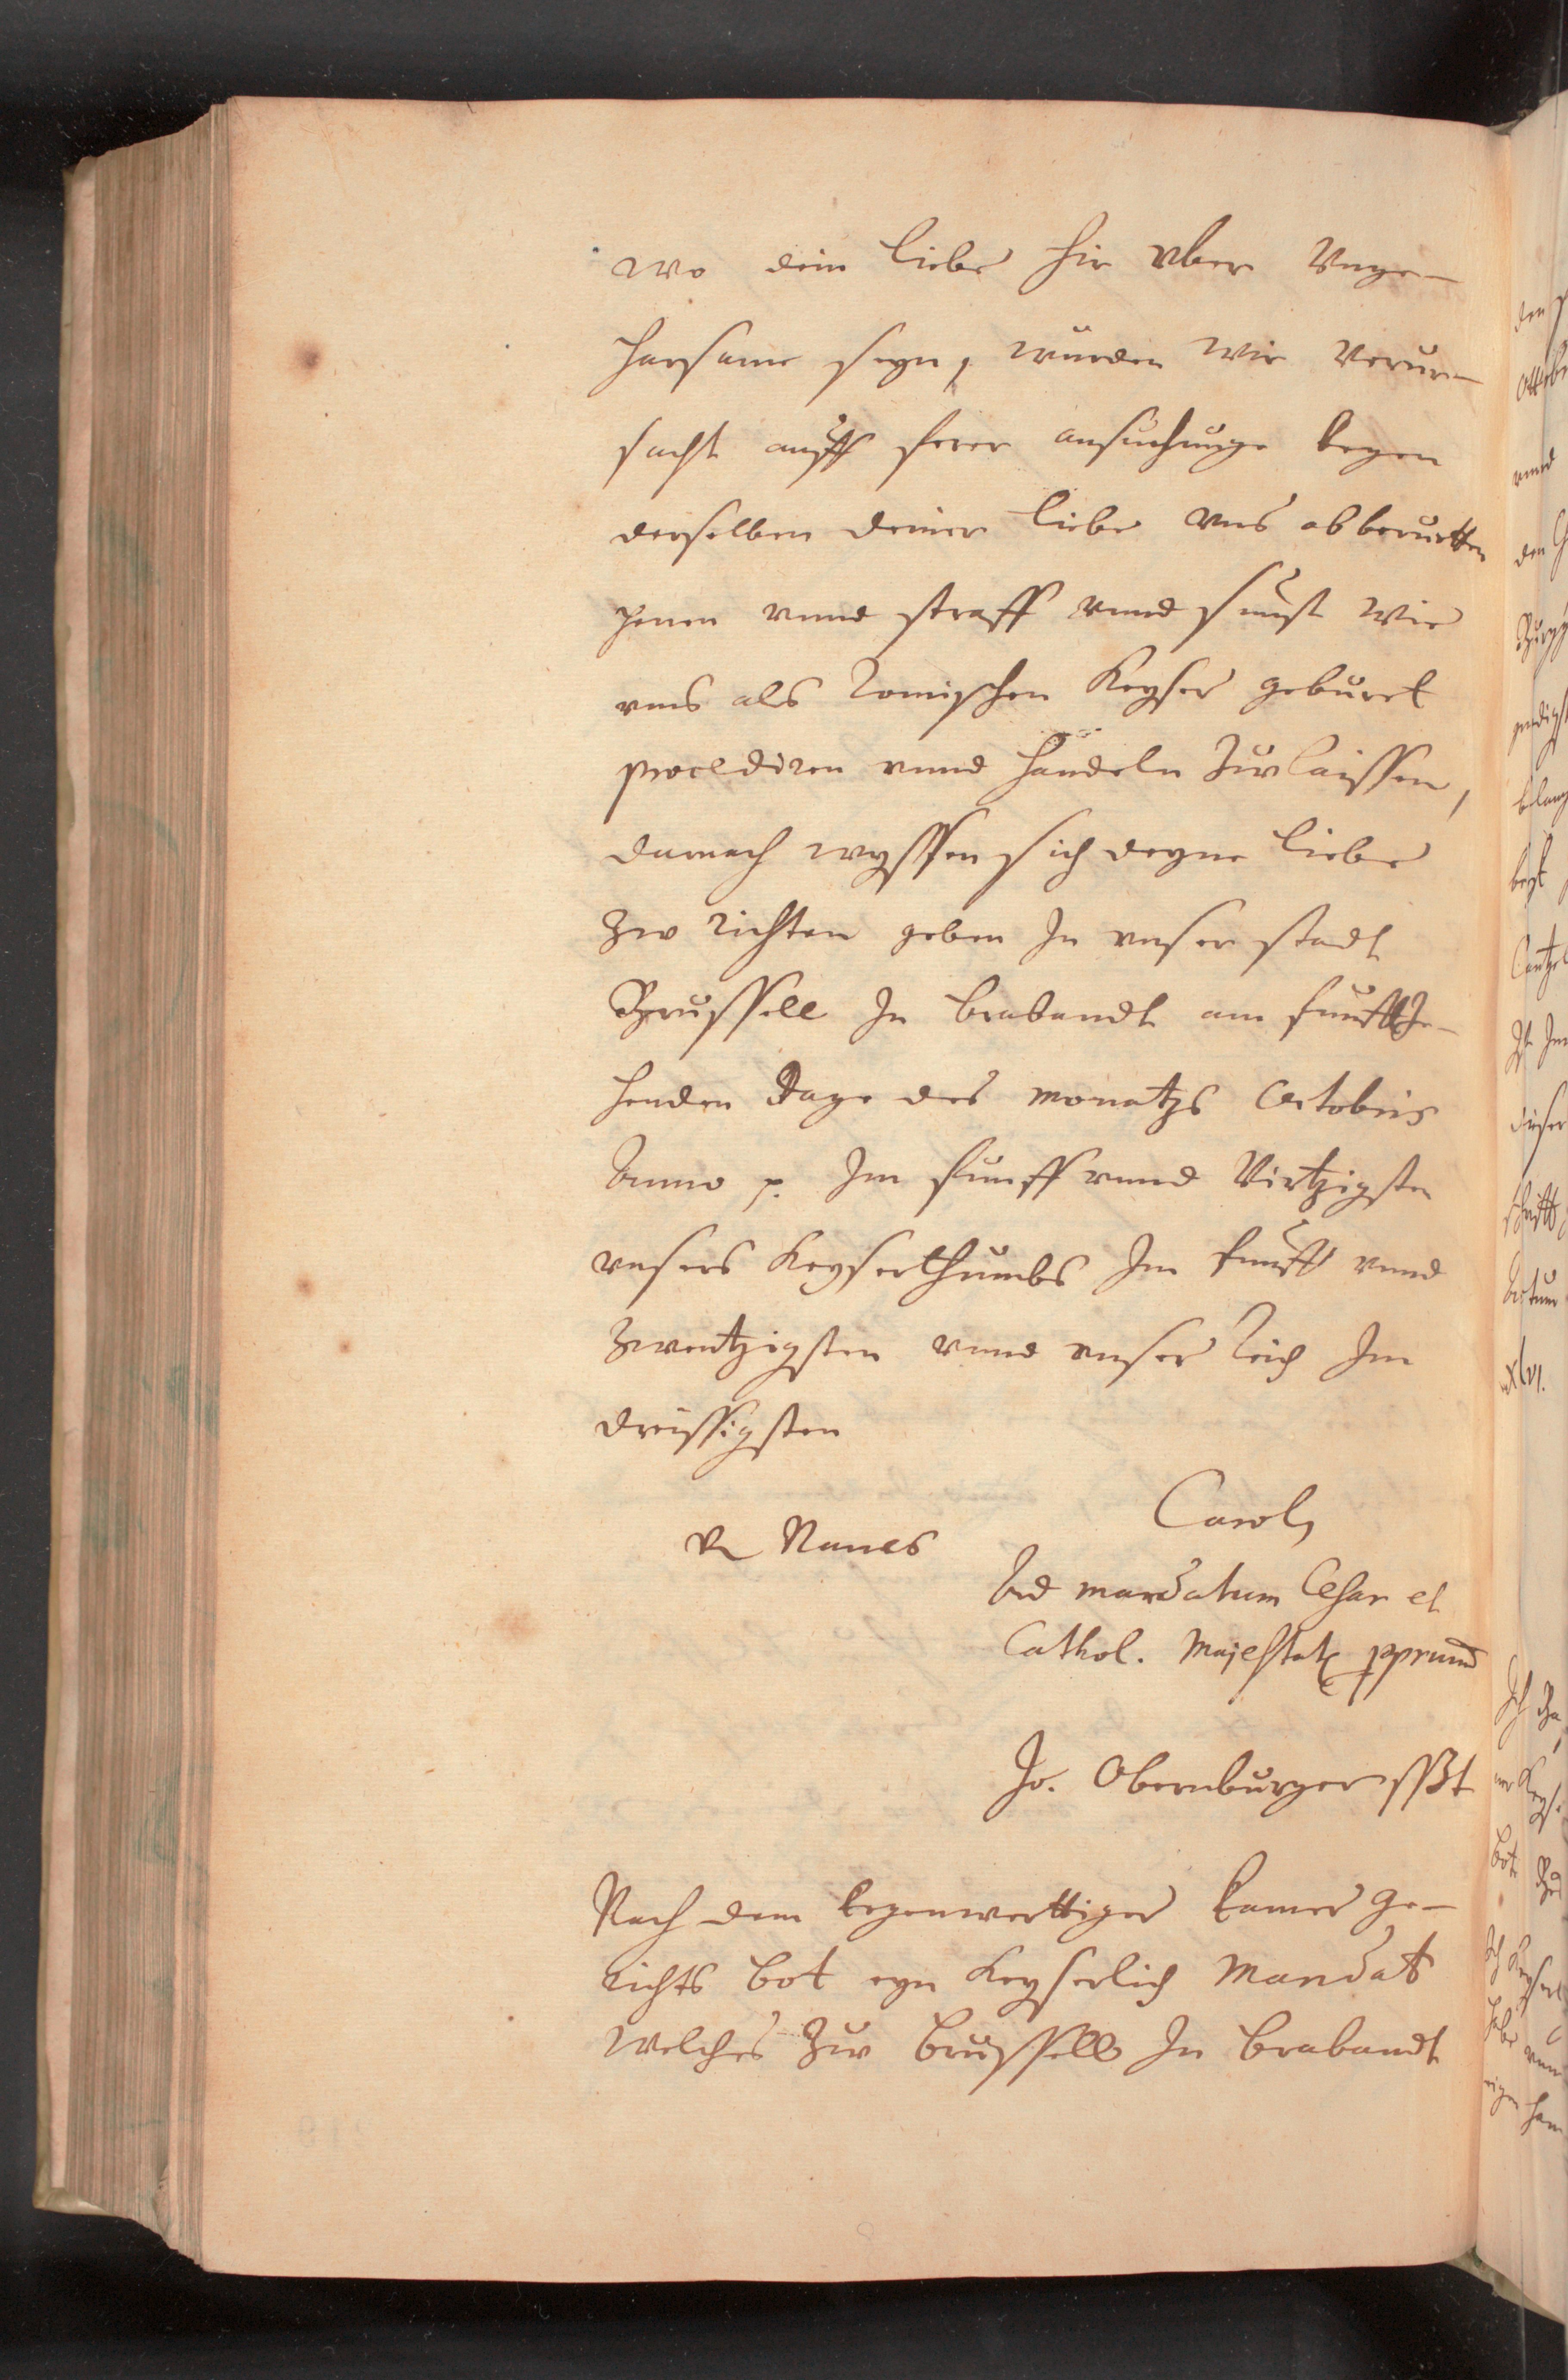 wo dein Liebe hir vber Vnge-
horsame seyn, würden wir verur-
sacht auff ferer ansuchunge kegen
derselben deiner Liebe vns abberurtten
penen vnnd straff vnnd sunst wie
vns als Romischen Keyser geburet
procediren vnnd handeln Zurlaissen,
darnach wyssen sich deyne Liebe
Zw richten geben In vnser stadt
Brussell In Brabandt am funfftze-
henden Dage des monatzs Octobris
Anno p. Im funff vnnd Virtzigsten
vnsers Keyserthumbs Im funff vnnd
Zwentzigsten vnnd vnser Reich Im
dreissigsten
Carol
V Naues
Ad mandatum Cesar et
Cathol. Majestat pprium
Jo. Obernburger sszt
Nach dem kegenwerttiger kamer ge-
richts bot eyn Keyserlich Mandat
welches Zur Brussell In Brabandt